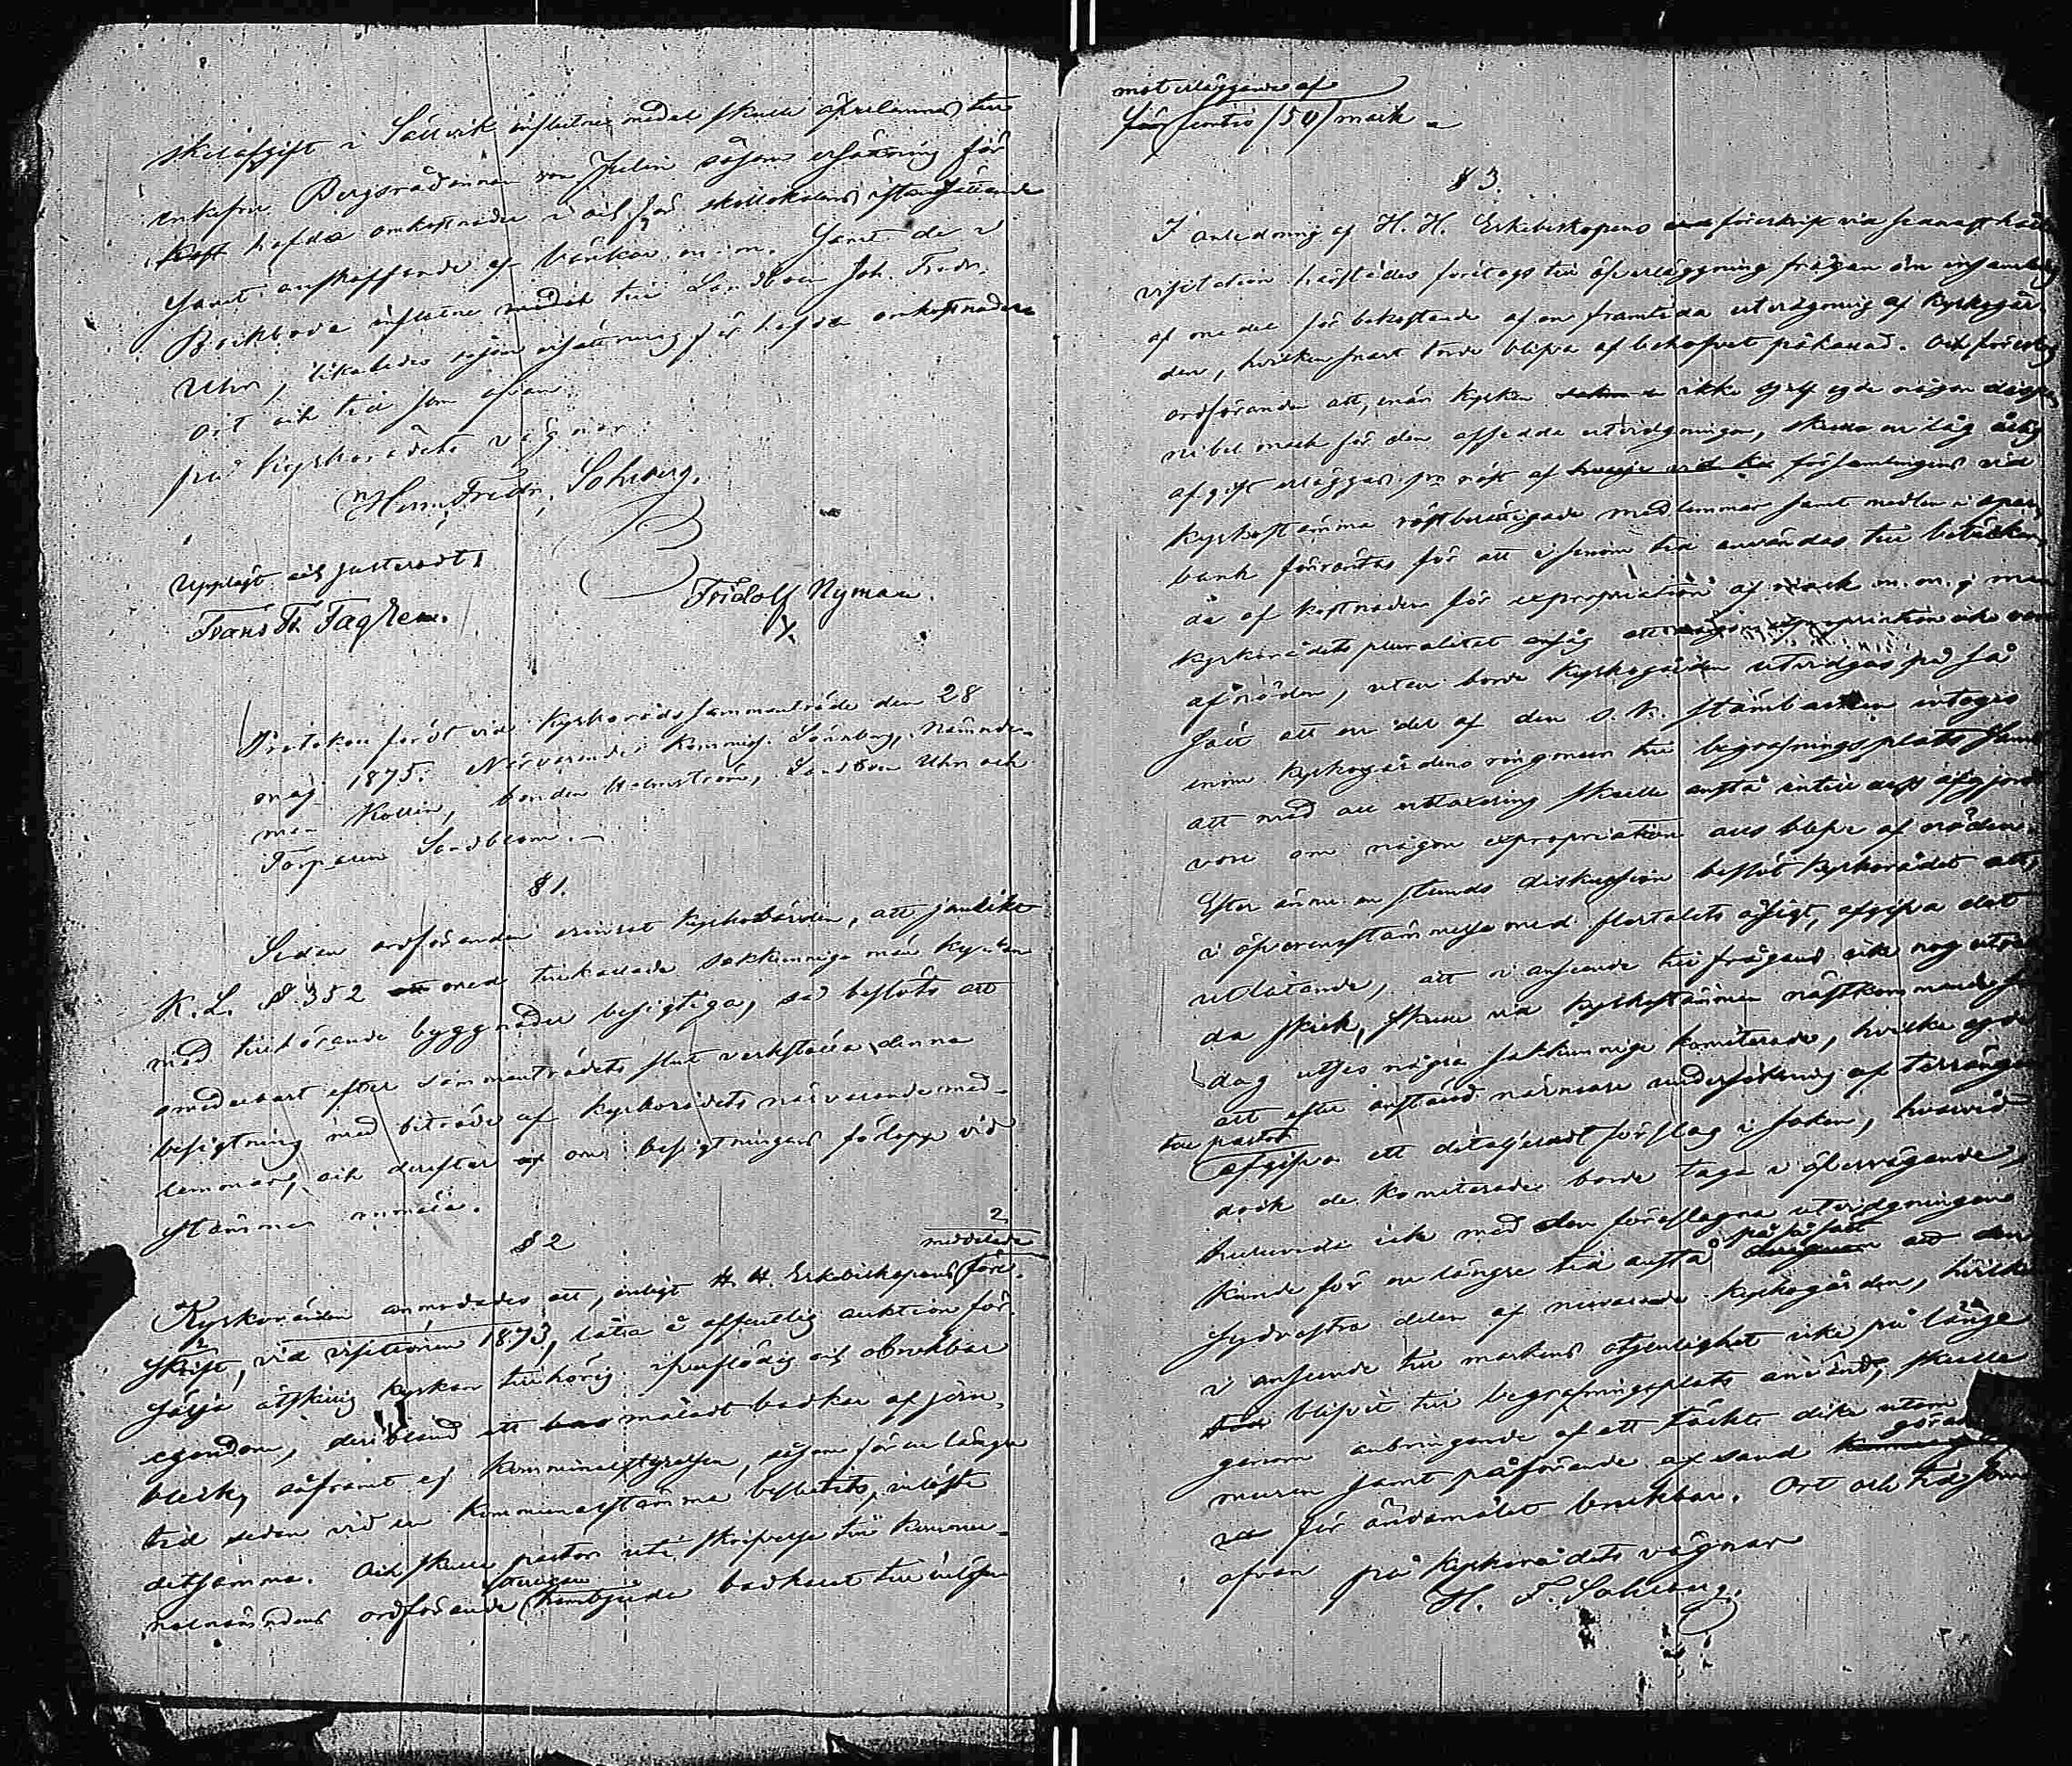 skilafgift i Sällvik influtne medel skulle öfverlämnas till
enkefru Bergsrådinnan von Julin såsom ersättning för
haft hafda omkostnader i och för skollokalens iståndsättande
samt anskaffande af bänkar m. m. samt de i
Backboda influtne medel till Landtbon Joh. Fredr.
Uhr, likaledes såsom ersättning för hafda omkostnader.
Ort och tid som ofvan.
på Kyrkorådets vägnar:
Herm. Fredr. Sohlberg.
Uppläst och justeradt:
Frans Fr. Fagren.
Fridolf Nyman.
Protokoll fördt vid Kyrkorådssammanträde den 28
maj 1875. Närvarande: Kommiss. Lönnberg, Nämnde-
man Kollin, bonden Holmström, Landtbon Uhr och
Torparen Sandblom.
§ 1.
Sedan ordföranden erinrat kyrkovärden, att jemlikt
K. L. § 352 att med tillkallade sakkunnige män kyrkan
med tillhörande byggnader besigtiga, så beslöts att
omedelbart efter sammanträdets slut verkställa denna
besigtning med biträde af kyrkorådets närvarande med-
lemmar, och derefter om besigtningens förlopp vid
stämman anmäla.
§ 2
2
meddelade
Kyrkovärden anmodades att, enligt H. H. Erkebiskopens före-
skrift, vid visitationen 1873, låta å offentlig auktion för-
sälja åtskillig kyrkan tillhörig öfverflödig och obrukbar
egendom, deribland ett måladt badkar af jern-
bleck, såframt ej Kommunalstyrelsen, såsom för en längre
tid sedan vid en Kommunalstämma beslutits, inlöste
detsamma. Och skulle pastor uti skrifvelse till kommu-
nalnämndens ordförande hembjuda badkaret till inlösen
mot erläggande af
för femtio (50) mark.
§ 3.
I anledning af H. H. Erkebiskopens föreskrift vid senast hållna
visitation härstädes företogs till öfverläggning frågan om insamling
af medel för bekostande af en framtida utvidgning af kyrkogår-
den, hvilken snart torde blifva af behofvet påkallad. Och föreslog
ordföranden att, enär kyrkan icke sjelf egde någon
mark för den afsedda utvidgningen, skulle en låg årlig
afgift erläggas af försammlingens vid
kyrkostämma röstberättigade medlemmar samt medlen i spar-
bank förräntas för att i sinom tid användas till
af kostnaden för expropriation af mark m. m.; men
kyrkorådets pluralitet ansåg att någon expropriation icke vore
af nöden, utan borde kyrkogården utvidgas på så
sätt att en del af den s. k. stämbacken intoges
inom kyrkogårdens ringmur till begrafningsplats samt
att med all uttaxering skulle anstå intill dess afgjordt
vore om någon expropriation alls blefve af nöden.
Efter ännu en stunds diskussion beslöt kyrkorådet att,
i öfverensstämmelse med flertalets åsigt, afgifva det
utlåtande, att i anseende till frågans icke nog utred-
da skick, skulle vid kyrkostämman nästkommande
dag utses några sakkunnige komiterade, hvilka egde
att efter anställd närmare undersökning af terrängen
till pastor
afgifva ett detaljeradt förslag i saken, hvarvid
dock de komiterade borde taga i öfvervägande,
huruvida icke med den föreslagna utvidgningen
kunde för en längre tid anstå på så sätt att den
sydvestra delen af nuvarande kyrkogården, hvilken
i anseende till markens otjenlighet icke på länge
tid blifvit till begrafningsplats använd, skulle
genom anbringande af ett täckt dike utom
muren samt påförande af sand göras
för ändamålet brukbar. Ort och tid som
ofvan på kyrkorådets vägnar
H. F. Sohlberg.